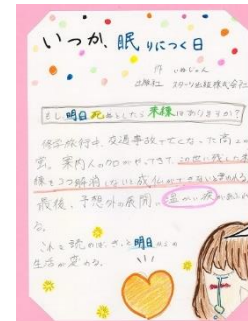 いつか、眠りにつく日
作 いぬじゅん
出版社 スターツ出版株式会社
もし明日死ぬとしたら未練はありますか?
修学旅行中、交通事故で亡くなった高2の
蛍。案内人のクロがやってきて、この世に残した未
練を3つ解消しないと成仏ができないと言われる。
最後、予想外の展開。温かい涙があふれ
る。
これを読めばきっと明日からの
生活が変わる。